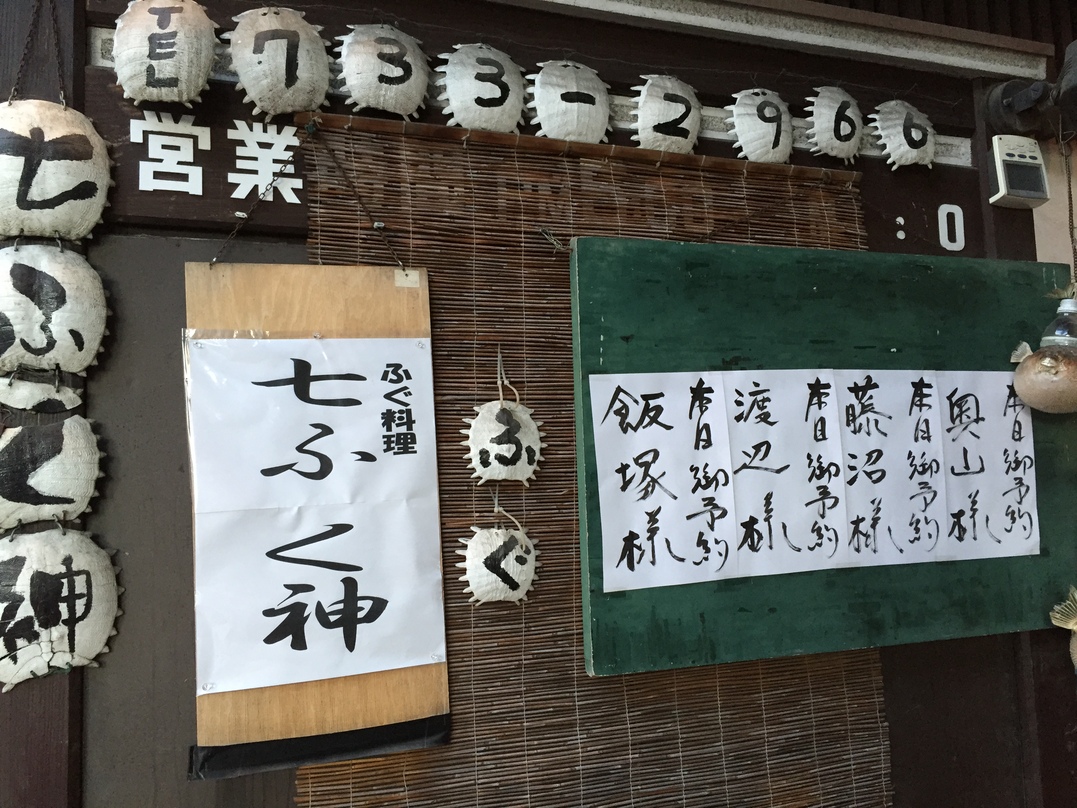 TEL 733-2966
営業
:0
七ふく神
ふぐ料理
七ふく神
ふぐ
本日御予約
奥山様
本日御予約
藤沼様
本日御予約
渡辺様
本日御予約
飯塚様